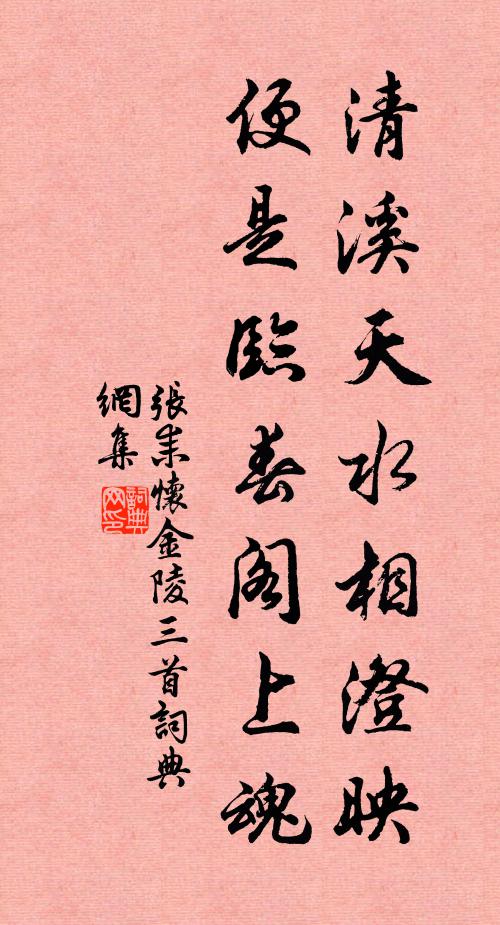 清溪天水相澄映
便是臨春閣上魂
張耒懷金陵三首詞典
網集
詞典
网印